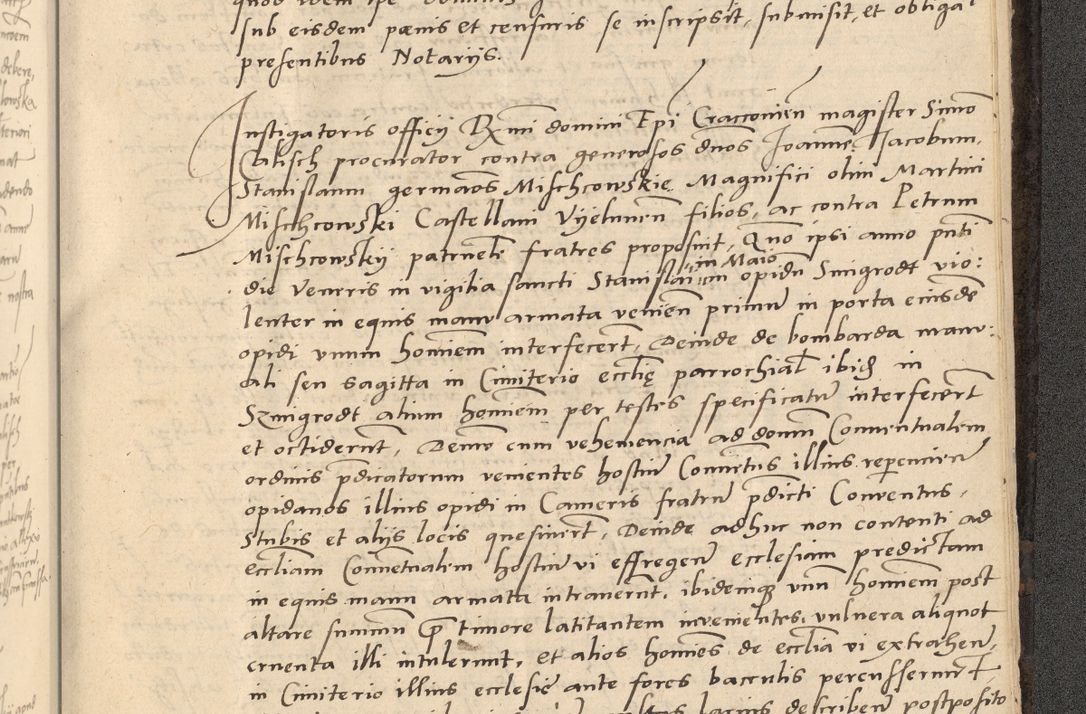 sub eisdem pœnis et censuris se inscripsit, submisit, et obliga
presentibus Notarijs.
Instigatoris officij Rx̃mi domini Epĩ Cracconieñ magister Simõ
Calisch procurator contra generosos dños Joannẽ, Jacobum,
Stanislaum germaños Mischcowskie, Magnifici olim Martini
Mischcowski Castellani Vyeluneñ filios, ac contra Petrum
Mischcowskij patruelẽ fratres proposuit, Quõ ipsi anno pñti
die Veneris in vigilia sancti Stanislai in Maio in opidũ Smigrodt vio:
lenter in equis manu armata venieñ primũ in porta eiusdẽ
opidi unum hominem interfecerũt, Deinde de bombarda manu:
ali seu sagitta in Cimiterio ecclię parrochial ibid in
Szmigrodt alium hominem per testes specificatũ interfecerũt
et occiderunt, Demũ cum vehemencia ad domũ Conventualem
ordinis p̃dicatorum venientes hostiũ Conventus illius reperierũt
opidanos illius opidi in Cameris fratrũ p̃dicti Conventus,
Stubis et alijs locis quesiverũt, Deinde adhuc non contenti ad
eccliam Conventualem hostiũ vi effregerũ ecclesiam predictam
in equis manu armata intraverunt, ibidemque unũ hominem post
altare summũ p̃ timore latitantem invenientes, vulnera aliquot
cruenta illi intulerunt, et alios homines de ecclia vi extraheñ
in Cimiterio illius ecclesię ante fores bacculis percusserunt,
latius describeñ postposito